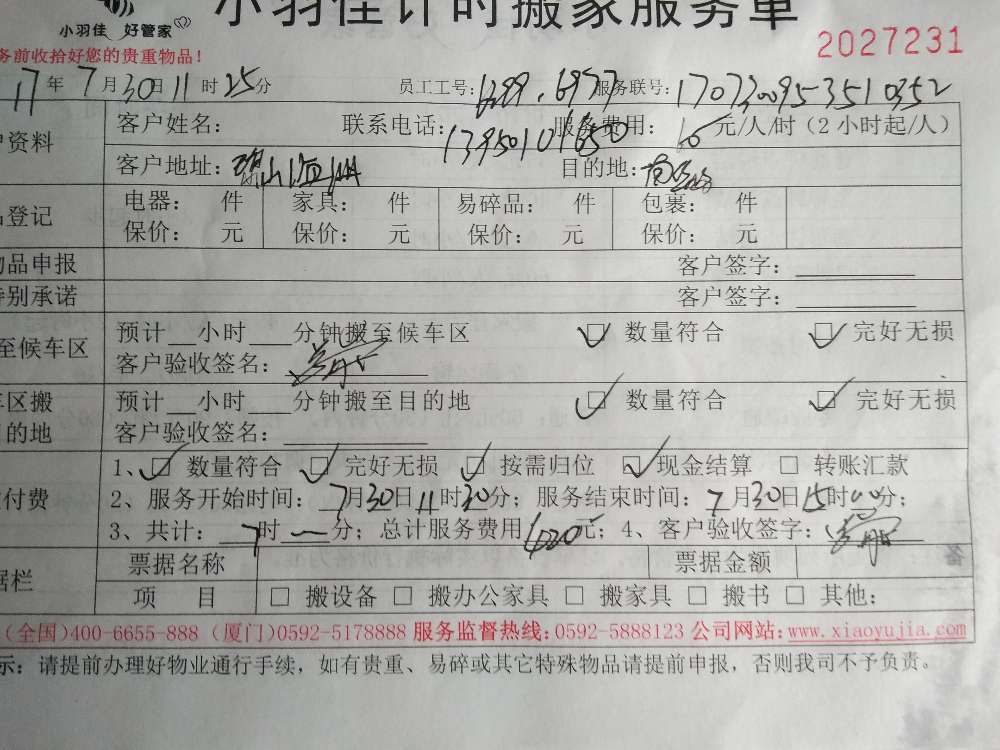 小羽佳计时搬家服务单
小羽佳 好管家
2027231
务前收拾好您的贵重物品!
17年7月30日11时25分 员工工号: 服务联号:
户资料 客户姓名: 联系电话:13950101650 服务费用:60元/人/时(2小时起/人)
客户地址: 目的地:
品登记 电器: 件 家具: 件 易碎品: 件 包裹: 件
保价: 元 保价: 元 保价: 元 保价: 元
物品申报 客户签字:
特别承诺 客户签字:
至候车区 预计__小时___分钟搬至候车区 ☑ 数量符合 ☑ 完好无损
客户验收签名:
车区搬目的地 预计__小时___分钟搬至目的地 ☑ 数量符合 ☑ 完好无损
客户验收签名:
付费 1、☑ 数量符合 ☑ 完好无损 ☑ 按需归位 ☑ 现金结算 □ 转账汇款
2、服务开始时间:7月30日11时30分;服务结束时间:7月30日15时00分;
3、共计:7时一分;总计服务费用620元;4、客户验收签字:
据栏 票据名称 票据金额
项 目 □ 搬设备 □ 搬办公家具 □ 搬家具 □ 搬书 □ 其他:
(全国)400-6655-888 (厦门)0592-5178888 服务监督热线:0592-5888123 公司网站:www.xiaoyujia.com
示:请提前办理好物业通行手续,如有贵重、易碎或其它特殊物品请提前申报,否则我司不予负责。